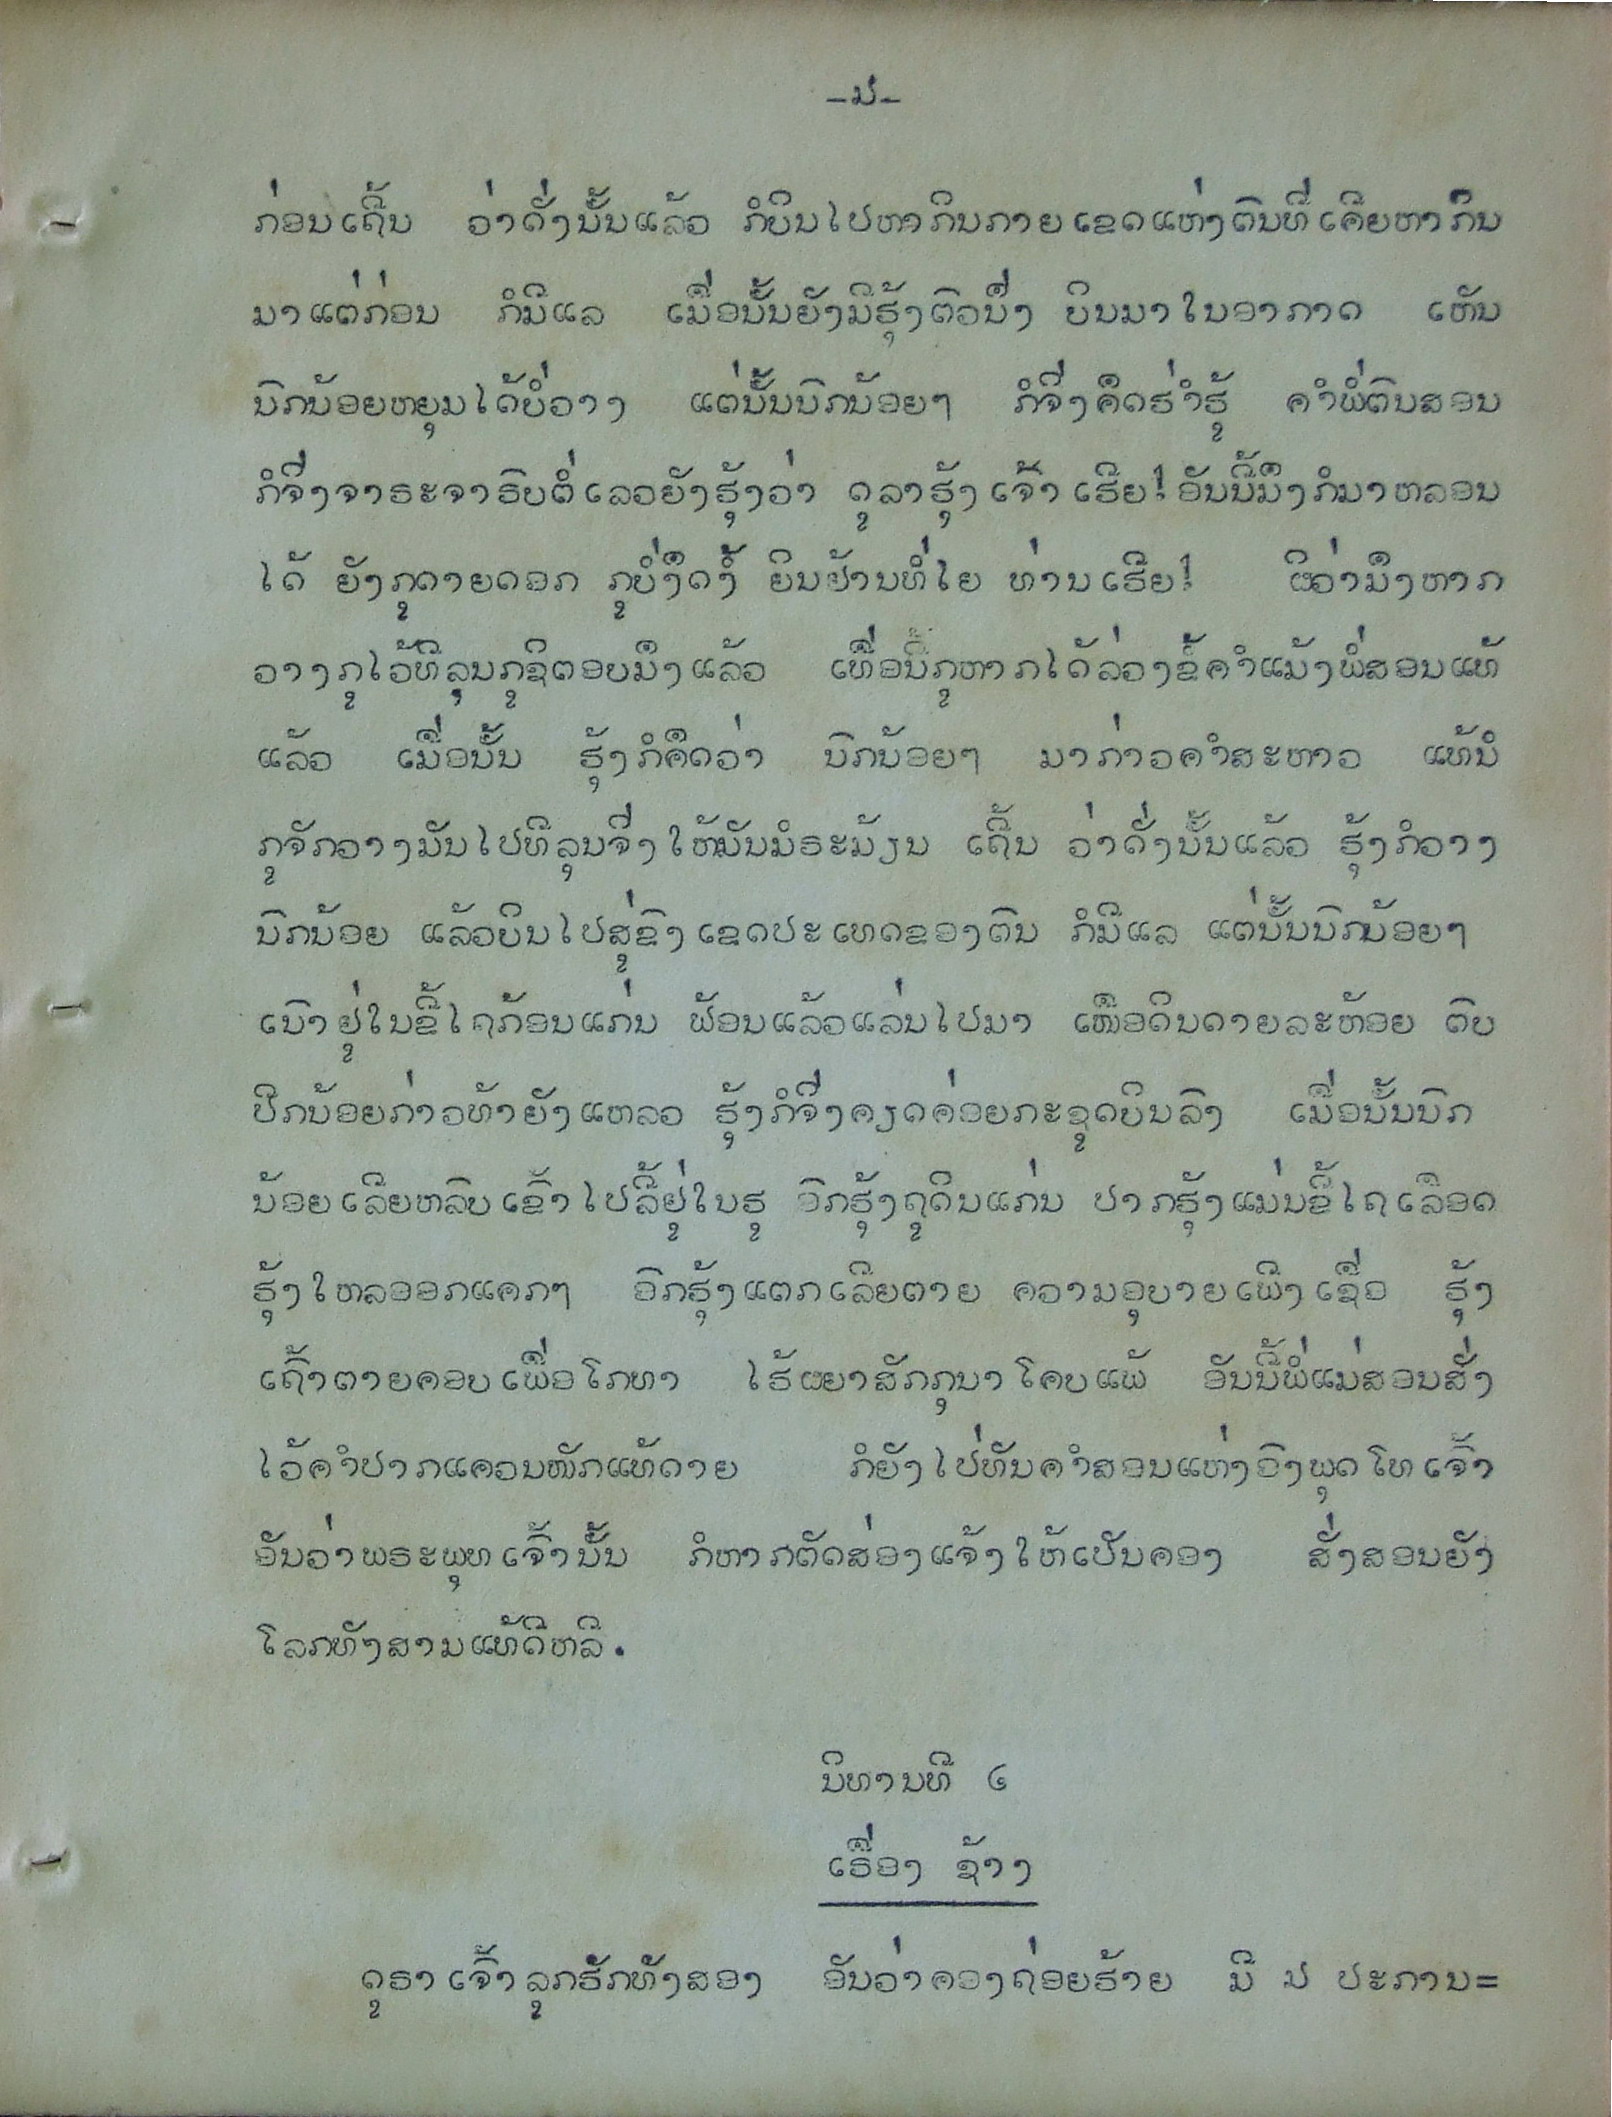 -໙-
ກ່ອນເຖີ້ນ ວ່າດັ່ງນັ້ນແລ້ວ ກໍບິນໄປຫາກິນກາຍເຂດແຫ່ງຕົນທີ່ເຄີຍຫາກິນ
ມາແຕ່ກ່ອນ ກໍມີແລ ເມື່ອນັ້ນຍັງມີຮຸ້ງຕົວນຶ່ງ ບິນມາໃນອາກາດ ເຫັນ
ນົກນ້ອຍຫຍຸມໄດ້ບໍ່ວາງ ແຕ່ນັ້ນນົກນ້ອຍໆ ກໍຈຶ່ງຄຶດຮ່ຳຮູ້ ຄຳພໍ່ຕົນສອນ
ກໍຈຶ່ງຈາຣະຈາຣົບຕໍ່ເລວຍັງຮຸ້ງວ່າ ດູລາຮຸ້ງເຈົ້າເຮີຍ! ອັນນີ້ມຶງກໍມາຫລອນ
ໄດ້ ຍັງກູດາຍດອກ ກູບໍ່ງຶດງໍ້ ຍິນຢ້ານທໍ່ໄຍ ທ່ານເຮີຍ! ຜິວ່າມຶງຫາກ
ວາງກູໄວ້ທີ່ລຸນກູຊິຕອບມຶງແລ້ວ ເທື່ອນີ້ກູຫາກໄດ້ລ່ວງຂໍ້ຄຳແມ້ງພໍ່ສອນແທ້
ແລ້ວ ເມື່ອນັ້ນ ຮຸ້ງກໍຄຶດວ່າ ນົກນ້ອຍໆ ມາກ່າວຄຳສະຫາວ ແທ້ນໍ
ກູຈັກວາງມັນໄປທີລຸນຈຶ່ງໃຫ້ມັນມໍຣະມ້ຽນ ເຖີ້ນ ວ່າດັ່ງນັ້ນແລ້ວ ຮຸ້ງກໍວາງ
ນົກນ້ອຍ ແລ້ວບິນໄປສູ່ຂົງເຂດປະເທດຂອງຕົນ ກໍມີແລ ແຕ່ນັ້ນນົກນ້ອຍໆ
ເນົາຢູ່ໃນຂີ້ໄຖກ້ອນແກ່ນ ຟ້ອນແລ້ວແລ່ນໄປມາ ເໜືອດິນດາຍລະຫ້ອຍ ຕົບ
ປີກນ້ອຍກ່າວທ້າຍັງແຫລວ ຮຸ້ງກໍຈຶ່ງຄຽດຄ່ອຍກະຊູດບິນລົງ ເມື່ອນັ້ນນົກ
ນ້ອຍເລີຍຫລົບເຂົ້າໄປລີ້ຢູ່ໃນຮູ ອົກຮຸ້ງຖູດິນແກ່ນ ປາກຮຸ້ງແມ່ນຂີ້ໄຖເລືອດ
ຮຸ້ງໃຫລອອກແຄກໆ ອົກຮຸ້ງແຕກເລີຍຕາຍ ຄວາມອຸບາຍເພີງເຊື່ອ ຮຸ້ງ
ເຖົ້າຕາຍຄອບເພື່ອໂກທາ ໄຮ້ຜຍາສັກກຸນາໂຄບແພ້ ອັນນີ້ພໍ່ແມ່ສອນສັ່ງ
ໄວ້ຄຳປາກແຄວນໜັກແທ້ດາຍ ກໍຍັງໄປ່ທັນຄຳສອນແຫ່ງອົງພຸດໂທເຈົ້າ
ອັນວ່າພຣະພຸທເຈົ້ານັ້ນ ກໍຫາກຕັດສ່ອງແຈ້ງໃຫ້ເປັນຄອງ ສັ່ງສອນຍັງ
ໂລກທັງສາມແທ້ດີຫລີ.
ນິທານທີ ໒
ເຣື່ອງ ຊ້າງ
ດູຣາເຈົ້າລູກຮັກທັງສອງ ອັນວ່າຄອງຖ່ອຍຮ້າຍ ມີ ໙ ປະການ=